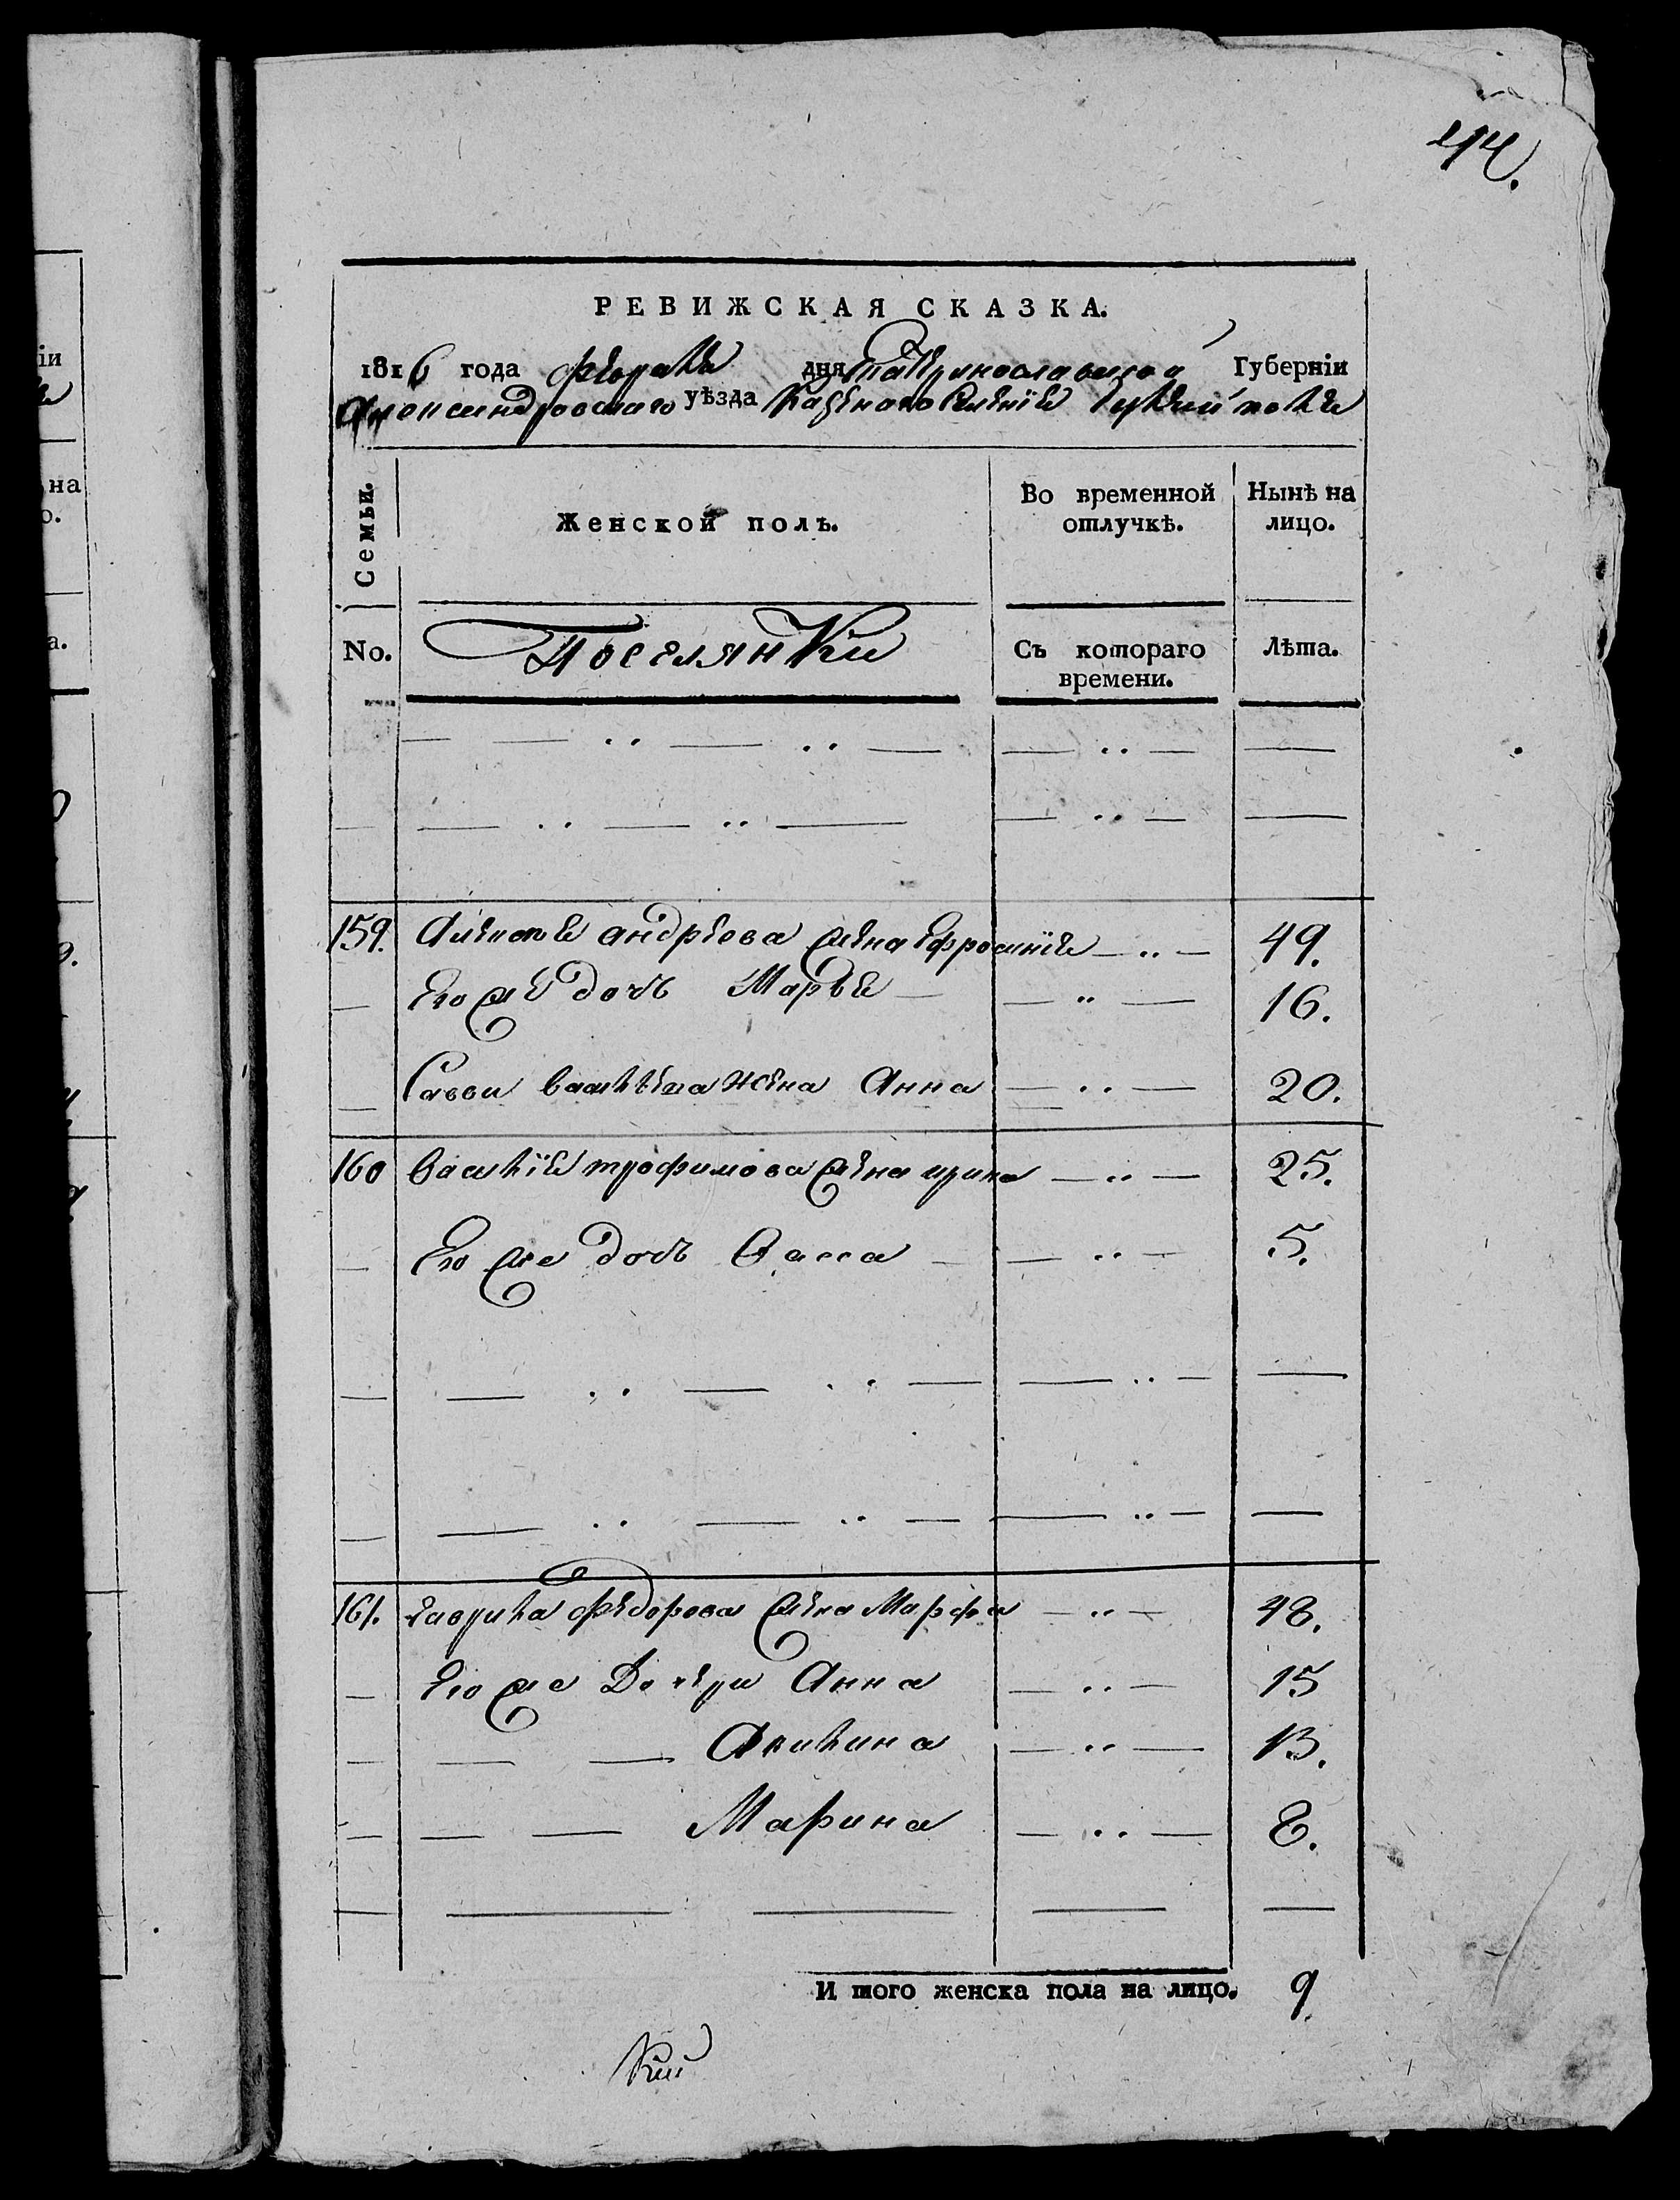 294.
РЕВИЖСКАЯ СКАЗКА.
1816 года февраля дня Екатеринославской Губерніи
Александровскаго уѣзда Казенаго селенія Гуляй поля
Семьи. Женской полъ. Во временной отлучкѣ. Нынѣ на лицо.
No. Поселянки Съ котораго времени. Лѣта.
— — .. — .. — — .. — —
— — .. — .. — — .. — —
159. Алексея андреева жена Ефросинія — .. — 49.
— Его же дочь Марья — — .. — 16.
— Саввы жена Анна — .. — 20.
160 Василія трофимова жена ирина — .. — 25.
— Его же дочь Васса — — .. — 5.
— — .. — .. — — .. — —
— — .. — .. — — .. — —
161. Гаврила федорова жена Марфа — .. — 48.
— Его же Дочери Анна — .. — 15
— — — Акилина — .. — 13.
— — — Марина — .. — 8.
— — — — —
И того женска пола на лицо. 9.